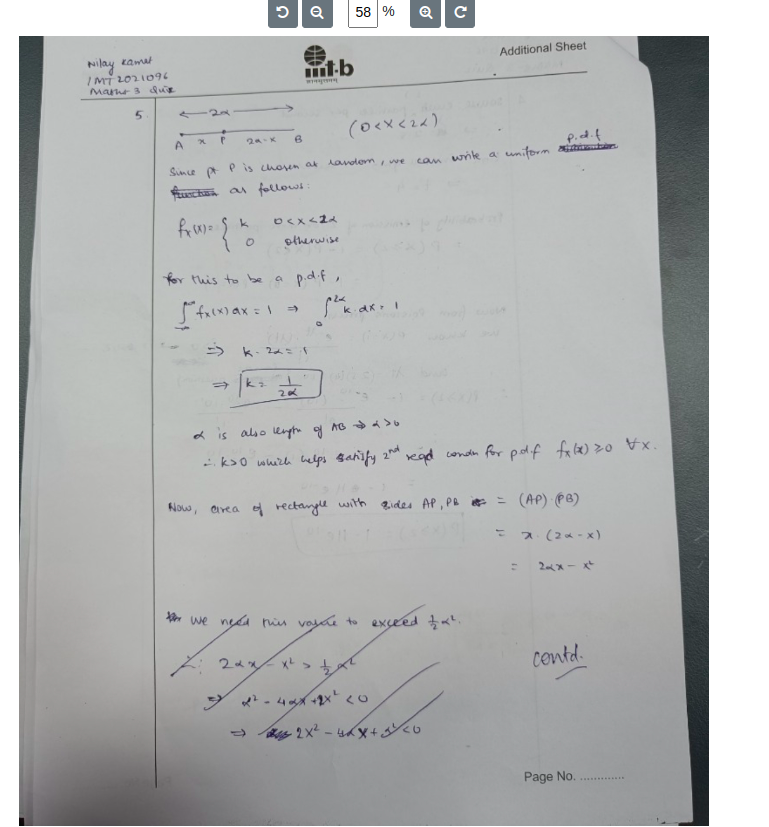 58 %
Additional Sheet
Nilay Kamat
IMT2021096
Maths 3 Quiz
iiit-b
5.
2α
(0<x<2α)
A x P 2α-x B
Since pt P is chosen at random, we can write a uniform p.d.f
function as follows:
fx(x) = { k 0<x<2α
0 otherwise
for this to be a p.d.f,
∫ fx(x) dx = 1 ⇒ ∫₀^2α k. dx = 1
⇒ k. 2α = 1
⇒ k = 1/2α
α is also length of AB ⇒ α>0
∴ k>0 which helps satisfy 2nd reqd condn for p.d.f fx(x) ≥0 ∀x.
Now, area of rectangle with sides AP, PB = (AP).(PB)
= x.(2α-x)
= 2αx - x²
We need this value to exceed ½α².
∴ 2αx - x² > ½α²
⇒ α² - 4αx + 2x² <0
contd.
⇒ 2x² - 4αx + α² <0
Page No. .............